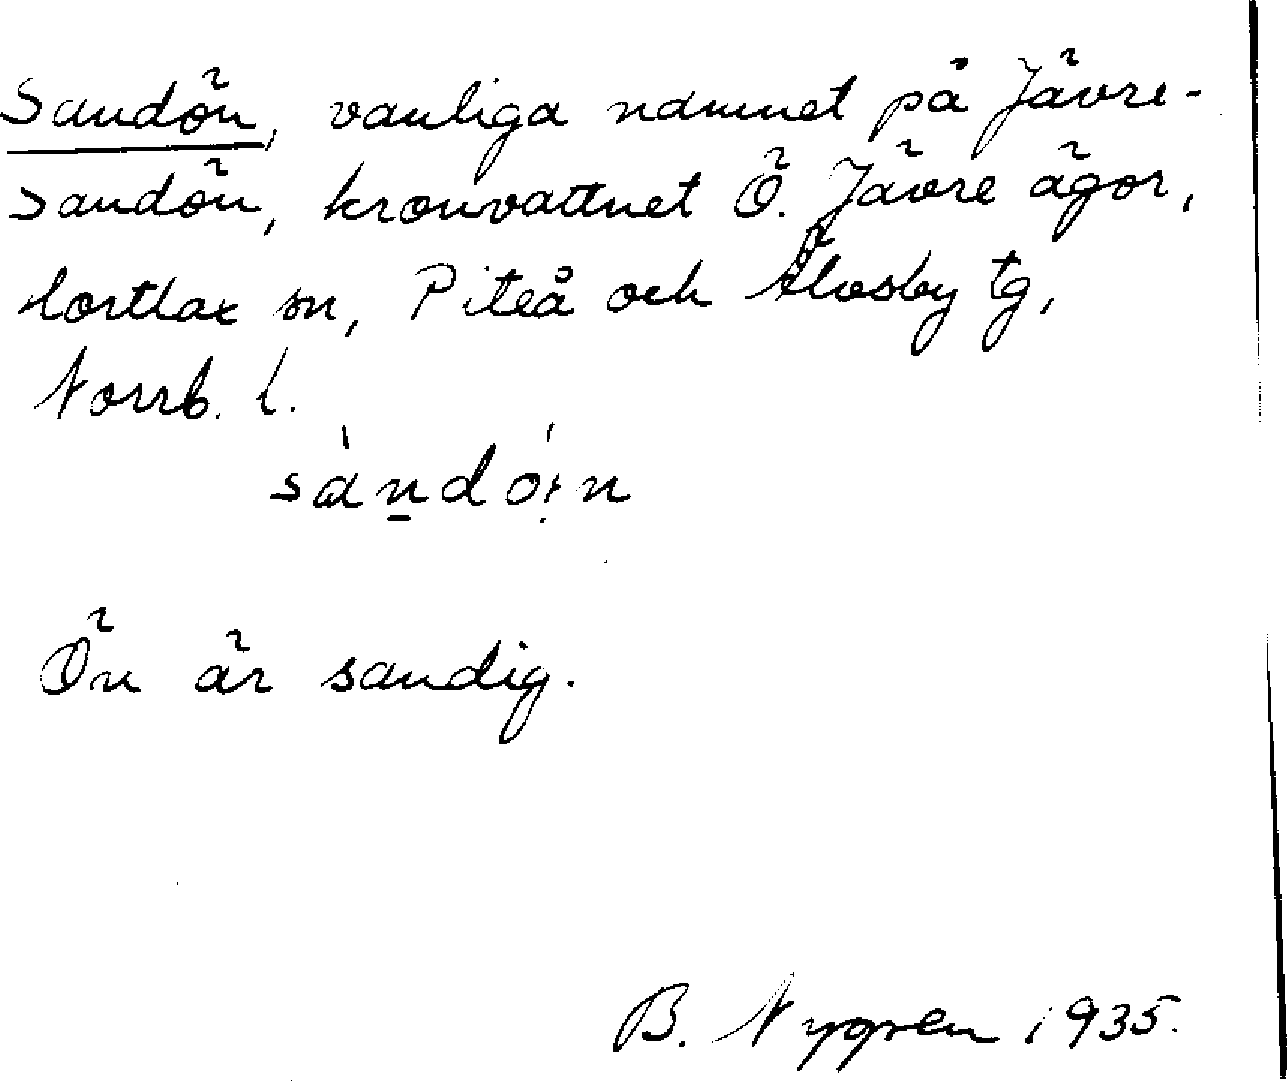 Sandön, vanliga namnet på Jävre-
sandön, kronvattnet Ö. Jävre ägor,
Hortlax sn, Piteå och Älvsby tg,
Norrb. l.
sàndó:n
Ön är sandig.
B. Nygren 1935.